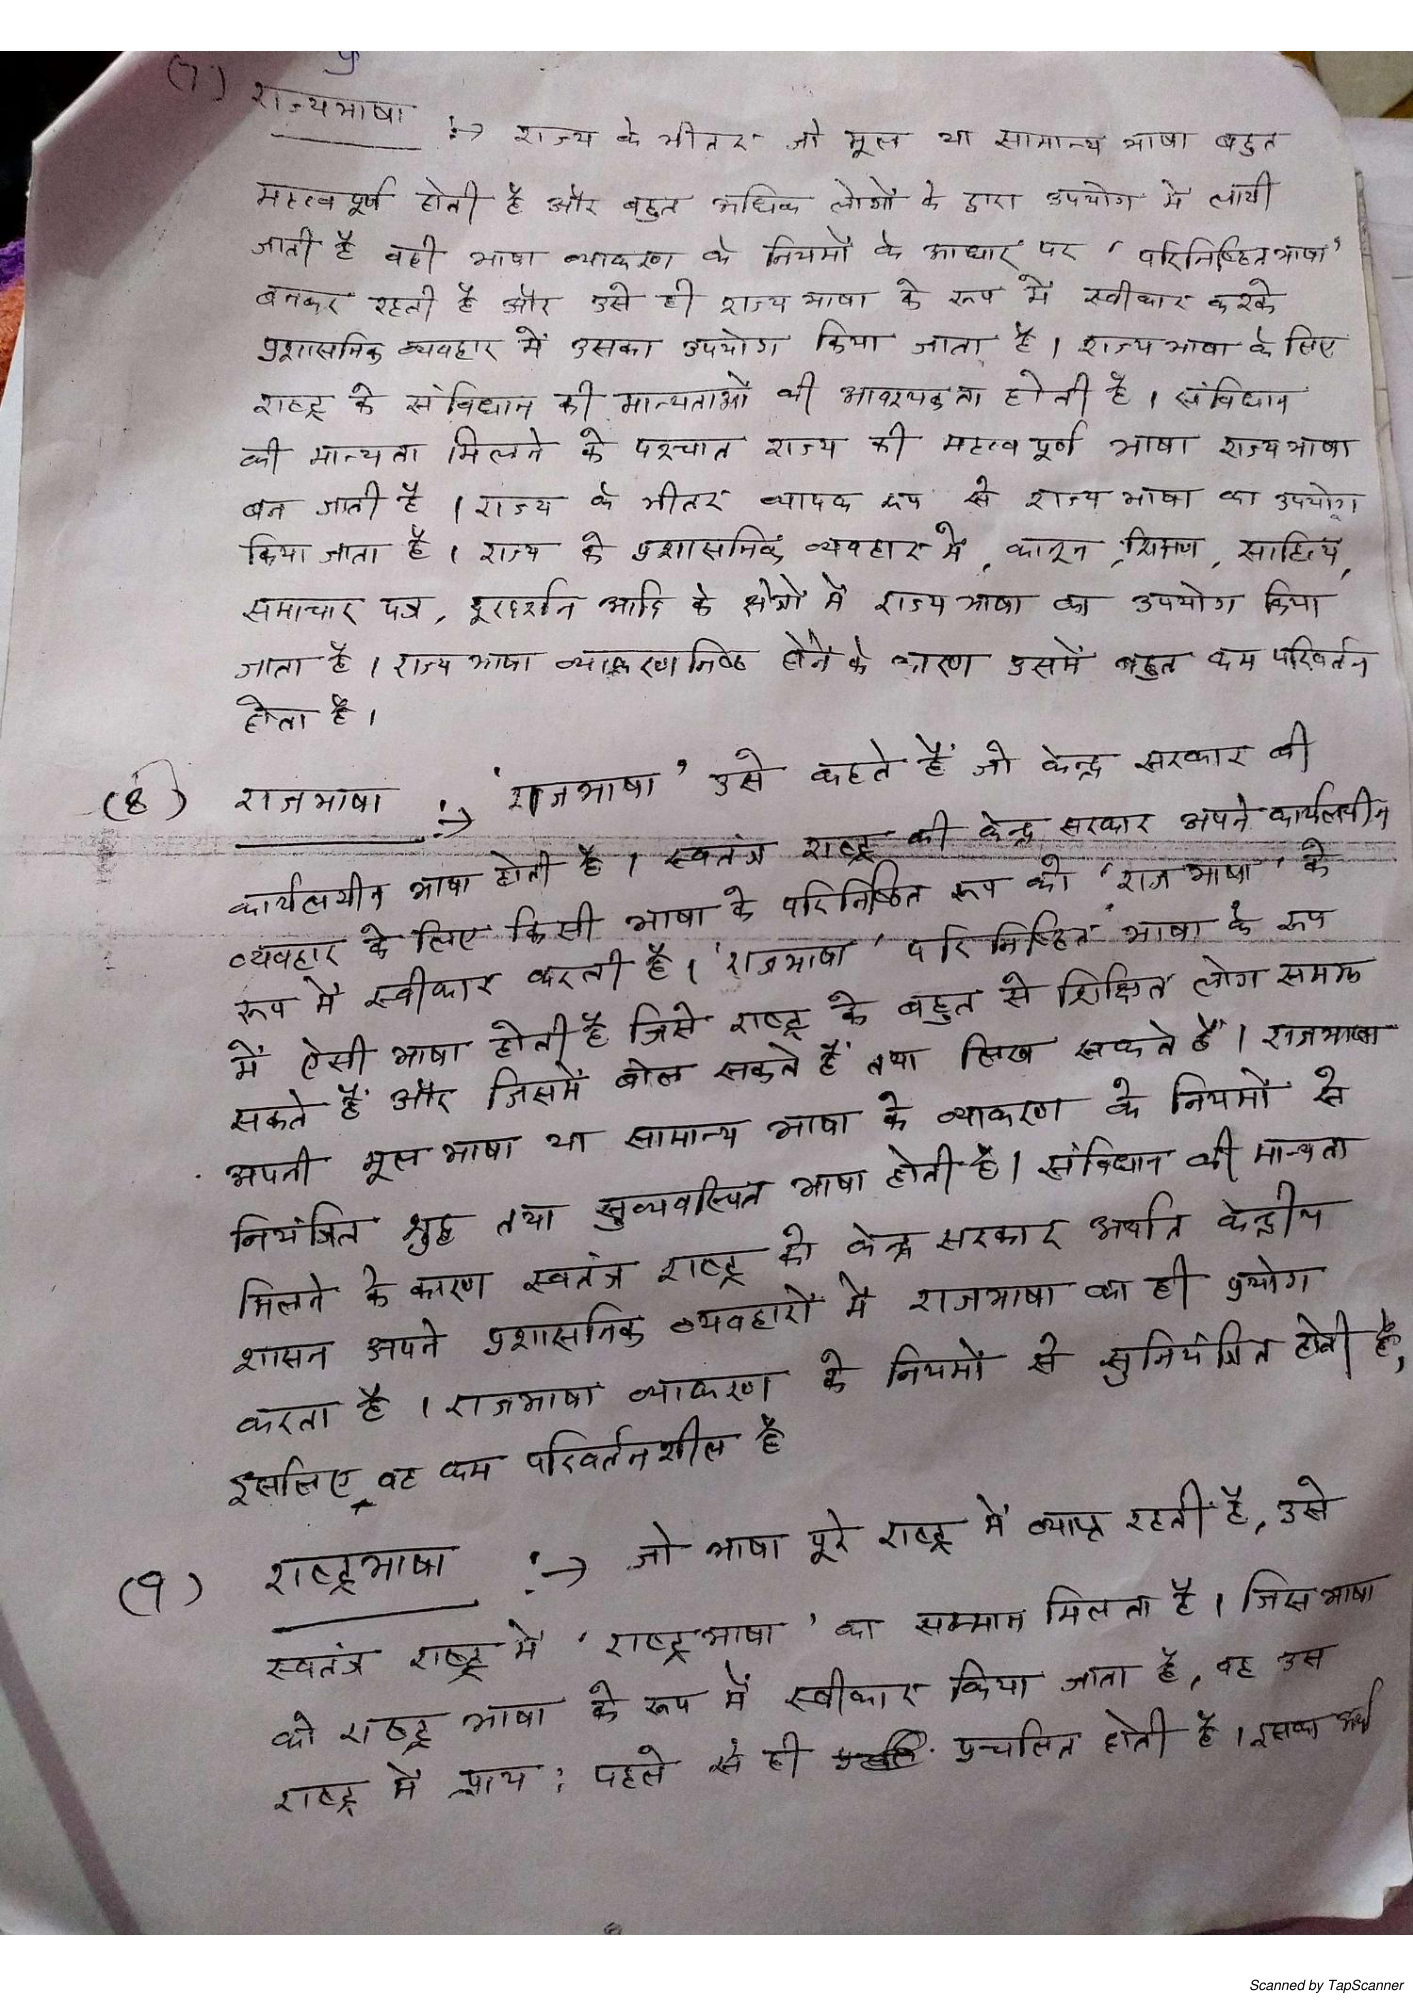 (7) राज्यभाषा :→ राज्य के भीतर जो मूल या सामान्य भाषा बहुत
महत्वपूर्ण होती है और बहुत अधिक लोगों के द्वारा उपयोग में लायी
जाती है वही भाषा व्याकरण के नियमों के आधार पर 'परिनिष्ठित भाषा'
बनकर रहती है और उसे ही राज्य भाषा के रूप में स्वीकार करके
प्रशासनिक व्यवहार में उसका उपयोग किया जाता है । राज्य भाषा के लिए
राष्ट्र के संविधान की मान्यताओं की आवश्यकता होती है । संविधान
की मान्यता मिलने के पश्चात राज्य की महत्वपूर्ण भाषा राज्य भाषा
बन जाती है । राज्य के भीतर व्यापक रूप से राज्य भाषा का उपयोग
किया जाता है । राज्य के प्रशासनिक व्यवहार में, कानून, शिक्षण, साहित्य,
समाचार पत्र, दूरदर्शन आदि के क्षेत्रों में राज्य भाषा का उपयोग किया
जाता है । राज्य भाषा व्याकरणनिष्ठ होने के कारण उसमें बहुत कम परिवर्तन
होता है ।
(8) राजभाषा :→ 'राजभाषा' उसे कहते हैं जो केन्द्र सरकार की
कार्यलयीन भाषा होती है । स्वतंत्र राष्ट्र की केन्द्र सरकार अपने कार्यलयीन
व्यवहार के लिए किसी भाषा के परिनिष्ठित रूप को 'राजभाषा' के
रूप में स्वीकार करती है । 'राजभाषा' परिनिष्ठित भाषा के रूप
में ऐसी भाषा होती है जिसे राष्ट्र के बहुत से शिक्षित लोग समझ
सकते हैं और जिसमें बोल सकते हैं तथा लिख सकते हैं । राजभाषा
अपनी मूल भाषा या सामान्य भाषा के व्याकरण के नियमों से
नियंत्रित शुद्ध तथा सुव्यवस्थित भाषा होती है । संविधान की मान्यता
मिलने के कारण स्वतंत्र राष्ट्र की केन्द्र सरकार अर्थात केन्द्रीय
शासन अपने प्रशासनिक व्यवहारों में राजभाषा का ही प्रयोग
करता है । राजभाषा व्याकरण के नियमों से सुनियंत्रित होती है,
इसलिए वह कम परिवर्तनशील है
(9) राष्ट्रभाषा :→ जो भाषा पूरे राष्ट्र में व्याप्त रहती है, उसे
स्वतंत्र राष्ट्र में 'राष्ट्रभाषा' का सम्मान मिलता है । जिस भाषा
को राष्ट्र भाषा के रूप में स्वीकार किया जाता है, वह उस
राष्ट्र में प्राय: पहले से ही प्रचलित होती है । इसका अर्थ
Scanned by TapScanner